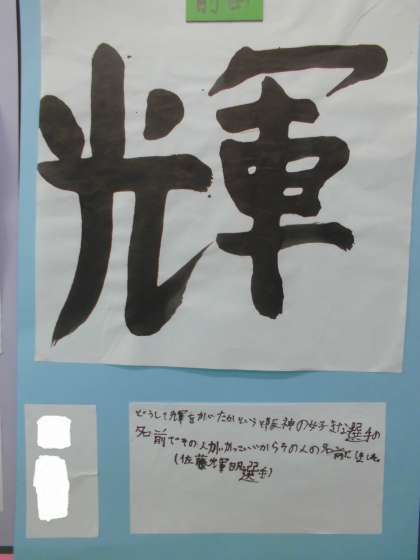 輝
どうして輝をかいたかというと阪神の好きな選手の
名前でその人がかっこいいからその人の名前にした
(佐藤輝明選手)